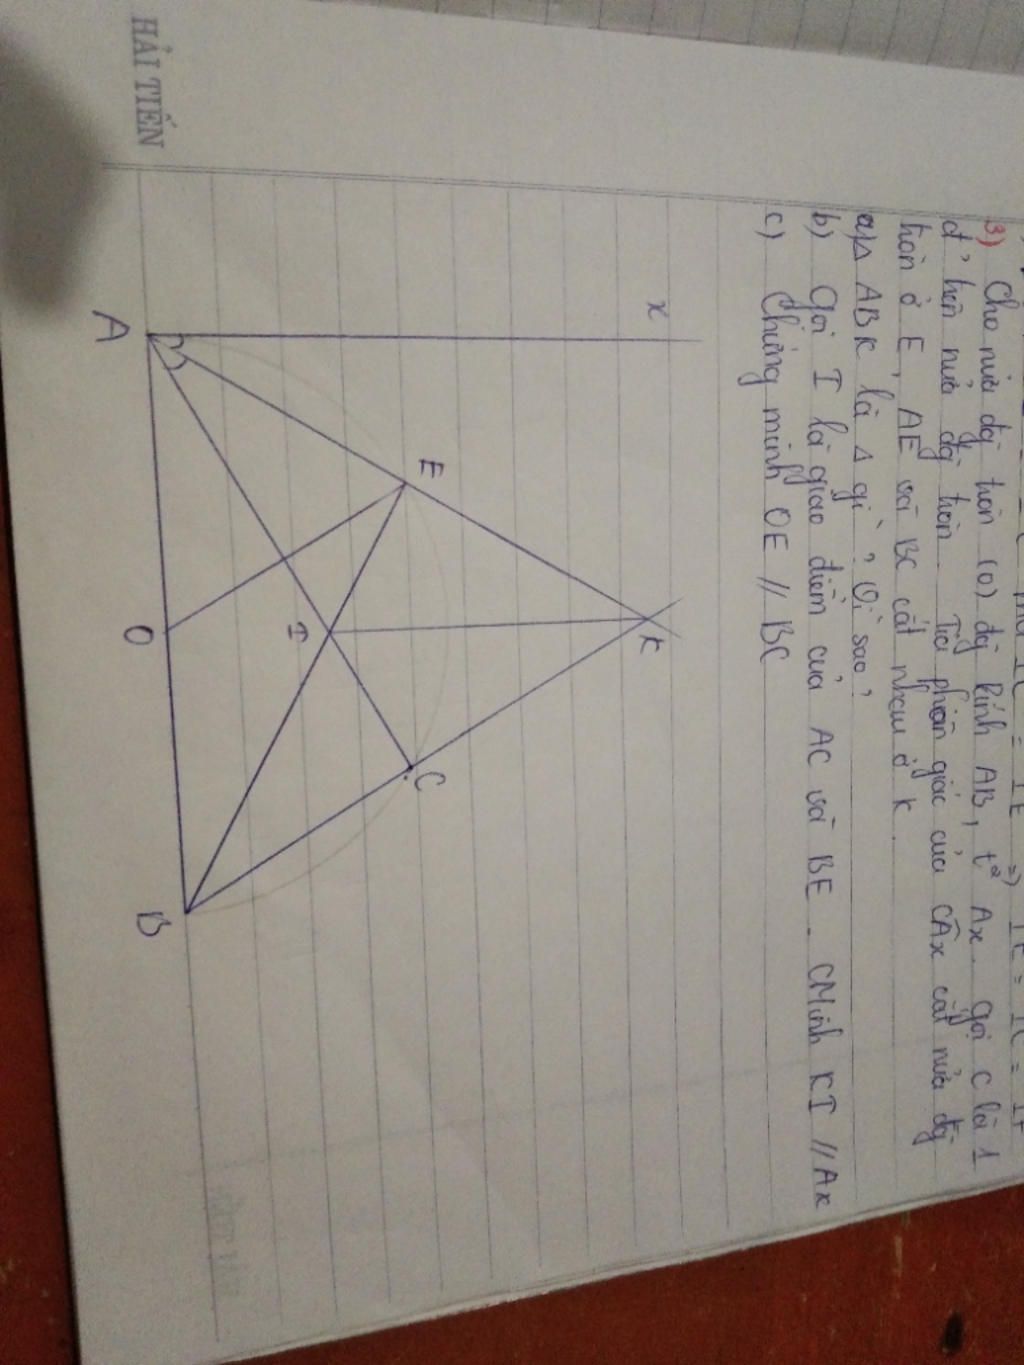 3) Cho nửa đg̀ tròn (O) đg̀ kính AB, t² Ax. Gọi C là 1
đ' trên nửa đg̀ tròn. Tia phân giác của CAx cắt nửa đg̀
tròn ở E, AE và BC cắt nhau ở K.
a) Δ ABK là Δ gì? Vì sao?
b) Gọi I là giao điểm của AC và BE. CMinh KI // Ax
c) Chứng minh OE // BC
x
K
E
C
I
A
O
B
HẢI TIẾN